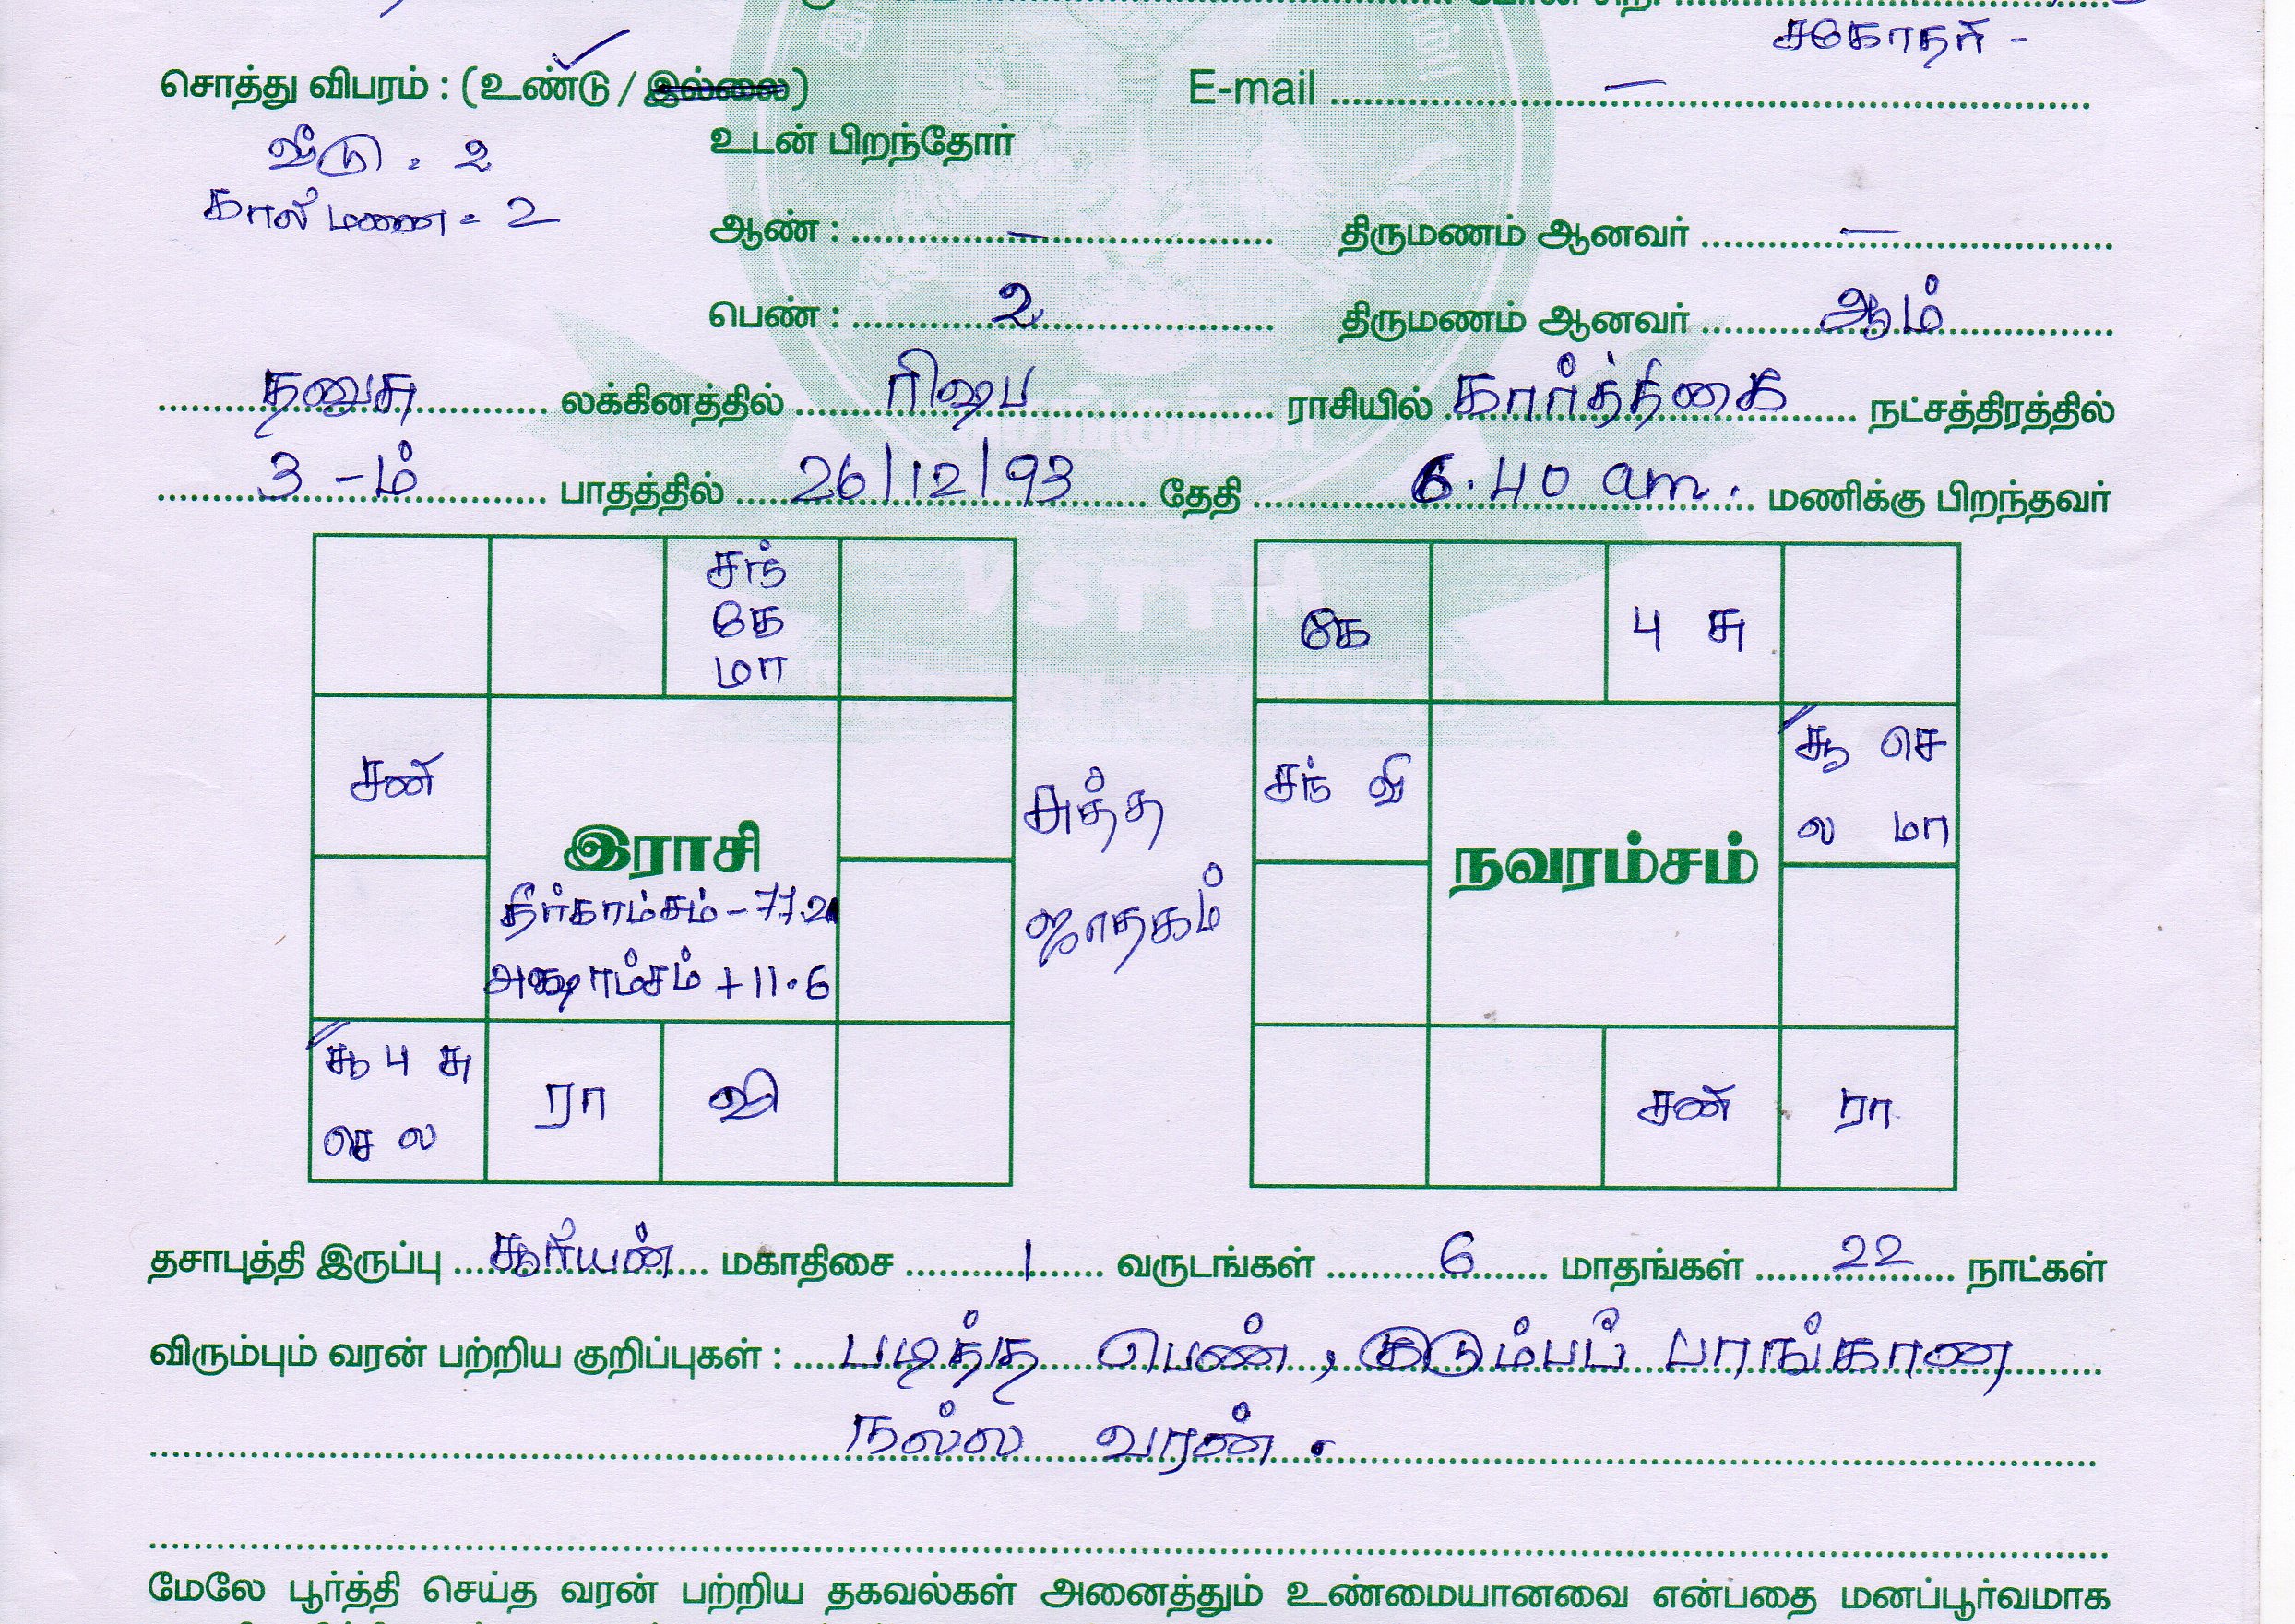 சகோதர் -
சொத்து விபரம் : (உண்டு / இல்லை) E-mail ..... – .....
உடன் பிறந்தோர்
வீடு . 2
காலி மணை - 2
ஆண் : ..... – ..... திருமணம் ஆனவர் ..... – .....
பெண் : ..... 2 ..... திருமணம் ஆனவர் ..... ஆம் .....
..... தனுசு ..... லக்கினத்தில் ..... ரிஷப ..... ராசியில் ..... கார்த்திகை ..... நட்சத்திரத்தில்
..... 3 -ம் ..... பாதத்தில் ..... 26/12/93 ..... தேதி ..... 6.40 am. ..... மணிக்கு பிறந்தவர்
சந்
கே
மா
சனி
இராசி
தீர்காம்சம் - 77.2
அக்ஷாம்சம் + 11.6
சூ பு சு
செ ல
ரா
வி
சுத்த
ஜாதகம்
கே
பு சு
சந் வி
சூ செ
ல மா
நவரம்சம்
சனி
ரா
தசாபுத்தி இருப்பு ..... சூரியன் ..... மகாதிசை ..... 1 ..... வருடங்கள் ..... 6 ..... மாதங்கள் ..... 22 ..... நாட்கள்
விரும்பும் வரன் பற்றிய குறிப்புகள் : ..... படித்த பெண் , குடும்பப் பாங்கான
நல்ல வரன் .
மேலே பூர்த்தி செய்த வரன் பற்றிய தகவல்கள் அனைத்தும் உண்மையானவை என்பதை மனப்பூர்வமாக